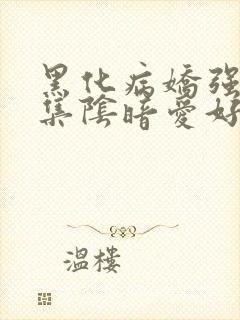 黑化病嬌強
集陰暗愛好
溫樓